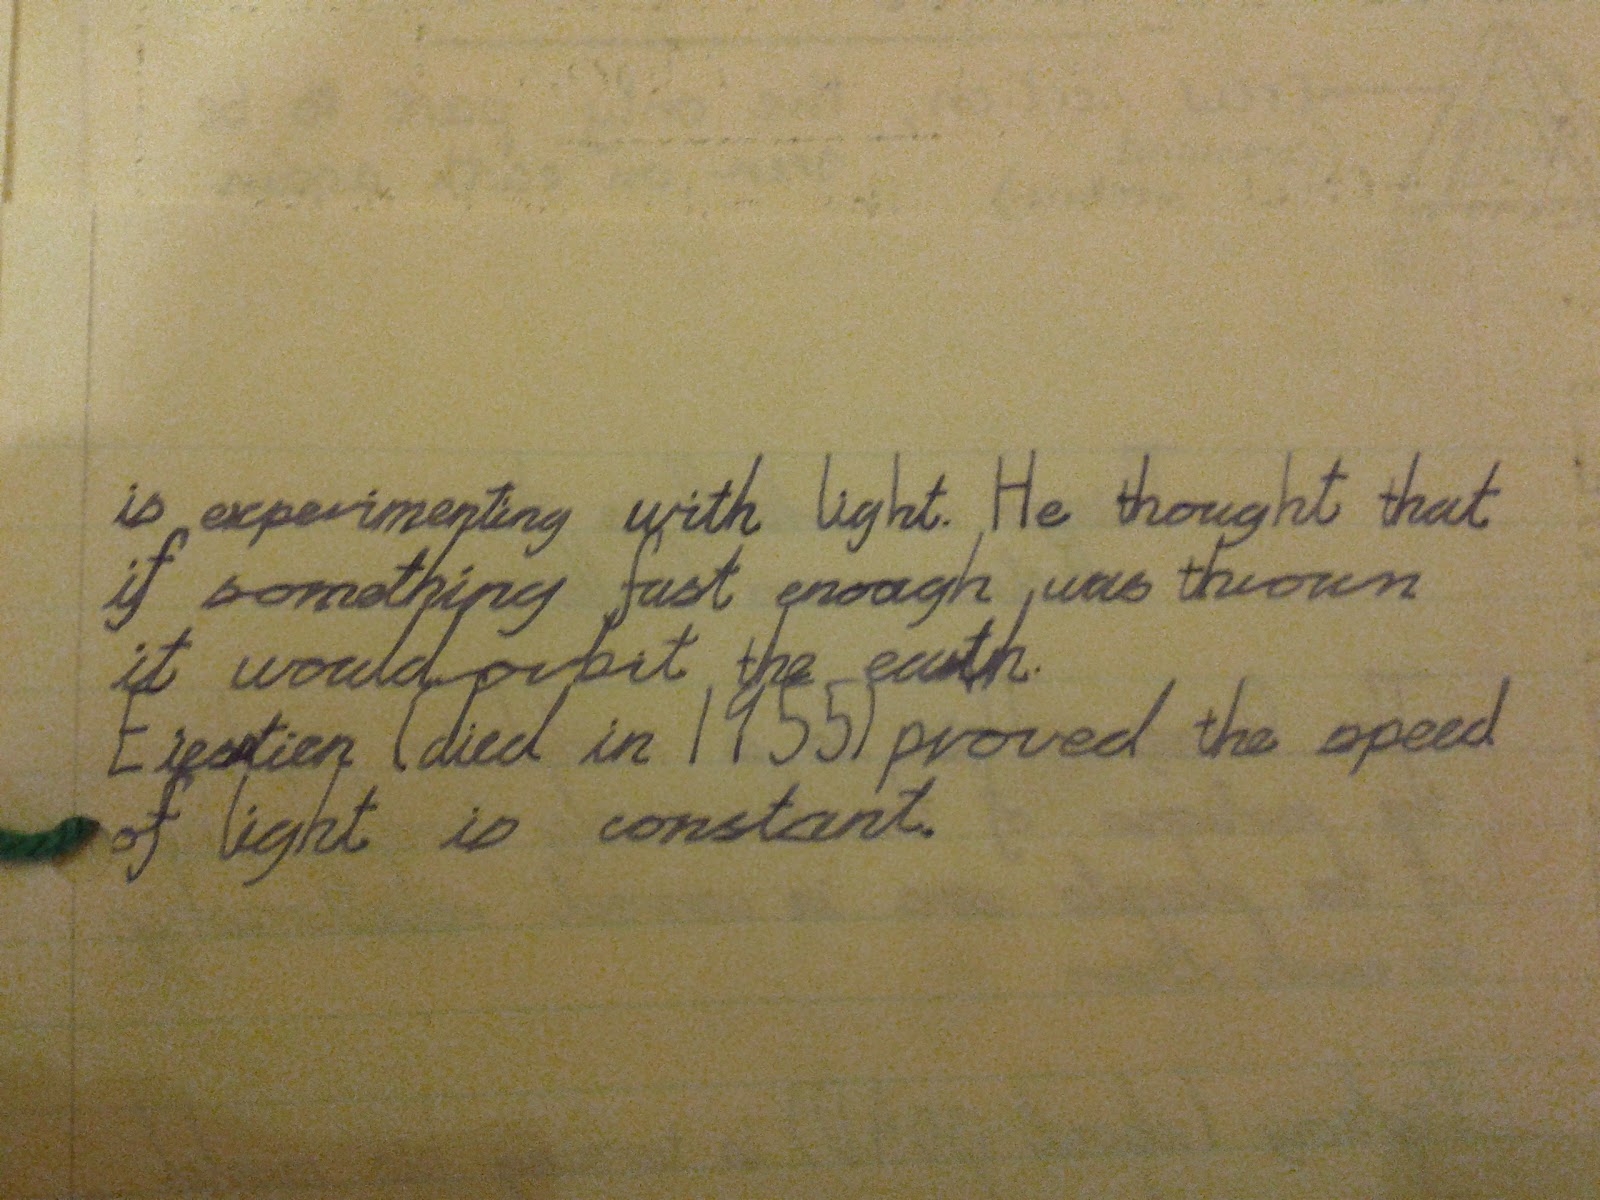 is experimenting with light. He thought that
if something fast enough was thrown
it would orbit the earth.
(died in 1955) proved the speed
of light is constant.